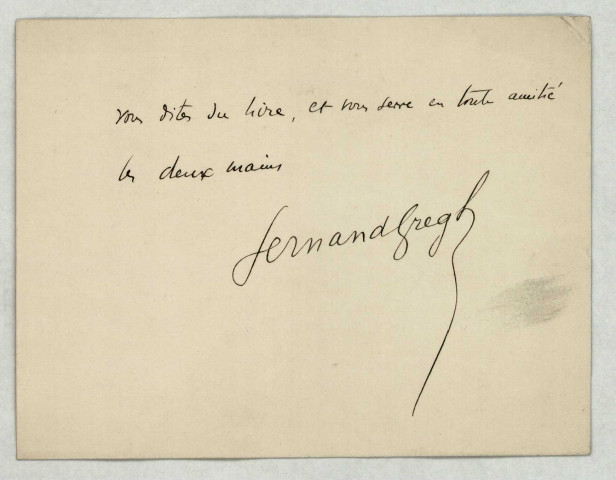 vous dites du livre, et vous serre en toute amitié
les deux mains
Fernand Gregh